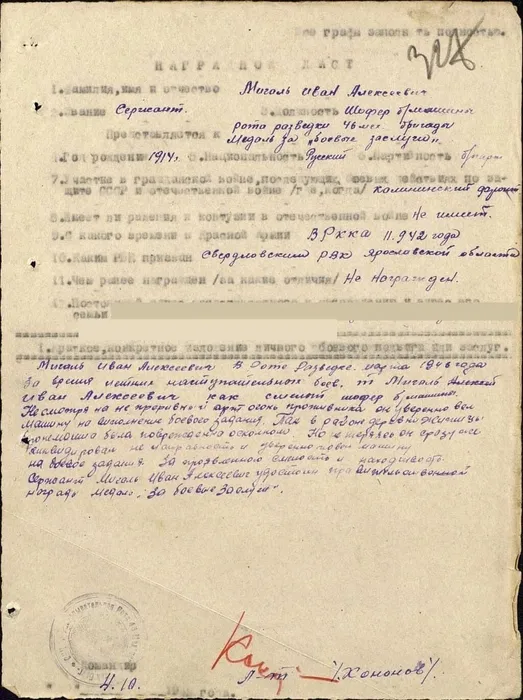 Все графы заполнять полностью.
328
НАГРАДНОЙ ЛИСТ
1.Фамилия,имя и отчество Мигаль Иван Алексеевич
2.Звание Сержант. 3.Должность Шофер б/машины
рота разведки 46 мех. бригады
Представляется к Медаль за „боевые заслуги"
4.Год рождения 1914г. 5.Национальность Русский 6.Партийность б/парт
7.Участие в гражданской войне,последующих боевых действиях по за-
щите СССР и отечественной войне /где,когда/ Калининский фронт
8.Имеет ли ранения и контузии в отечественной войне Не имеет.
9.С какого времени в Красной Армии В РККА 11.942 года
10.Каким РВК призван Свердловским РВК Ярославской области
11.Чем ранее награжден /за какие отличия/ Не награжден.
12.Постоянный
семьи
1.Краткое,конкретное изложение личного боевого подвига или заслуг.
Мигаль Иван Алексеевич В Роте Разведке. марта 194 года
За время летних наступательных боев. т Мигаль
Иван Алексеевич как смелый шофер б/машины.
Несмотря на не прерывный арт огонь противника он уверенно вел
машину на выполнение боевого задания. Так в районе деревни
бронемашина была повреждена осколком. Но не теряясь он сразу же
ликвидировал не исправность и уверенно повел машину
на боевое задания. За проявленную смелость и находчивость
Сержант Мигаль Иван Алексеевич удостоин правительственной
награды медаль „За боевые Заслуги".
Командир
4.10. Л-т /Кононов/.
194 года.